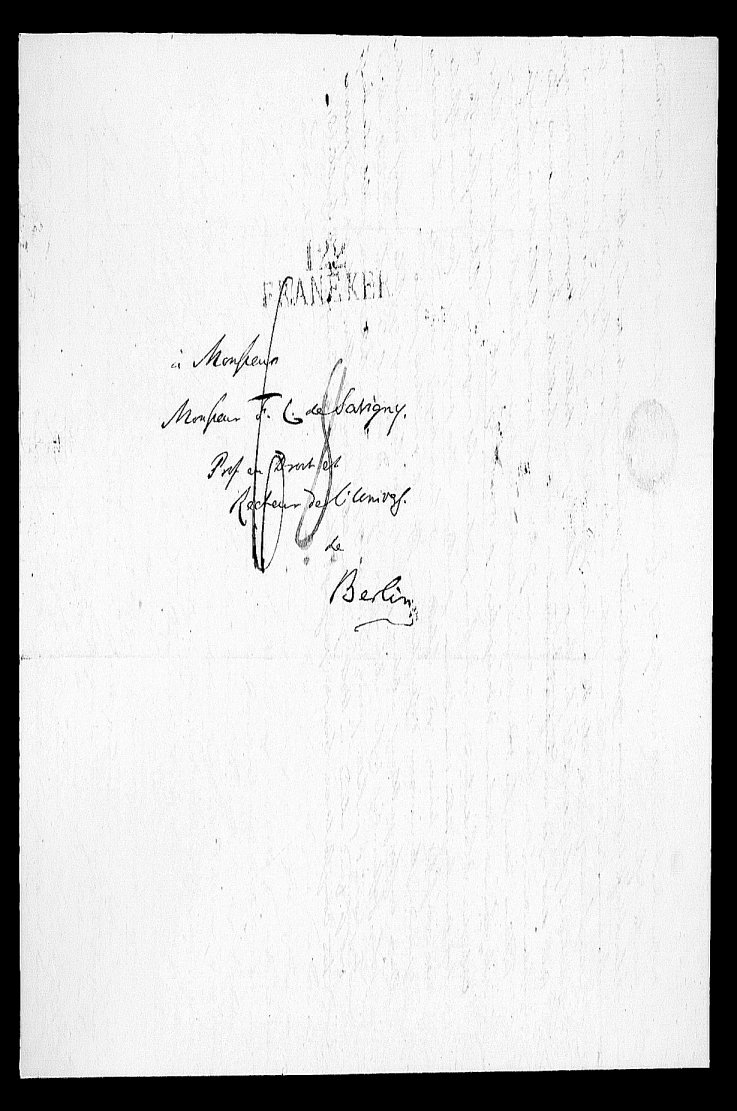 122
FRANEKER
à Monsieur
Monsieur F. C. de Savigny.
Prof en Droit et
Recteur de l'Univers.
de
Berlin